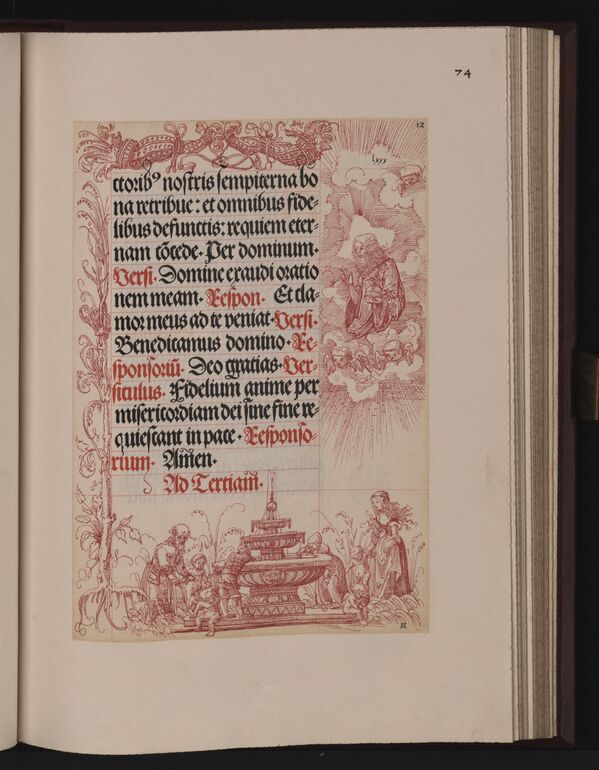 74
12
lxxx
ctorib⁹ nostris sempiterna bo
na retribue: et omnibus fide⸗
libus defunctis: requiem eter⸗
nam cōcede. Per dominum.
Versi. Domine exaudi oratio
nem meam. Respon. Et cla⸗
mor meus ad te veniat. Versi.
Benedicamus domino. Re⸗
sponsoriū. Deo gratias. Ver⸗
siculus. Fidelium anime per
misericordiam dei sine fine re⸗
quiescant in pace. Responso⸗
rium. Amen.
Ad Tertiam̄.